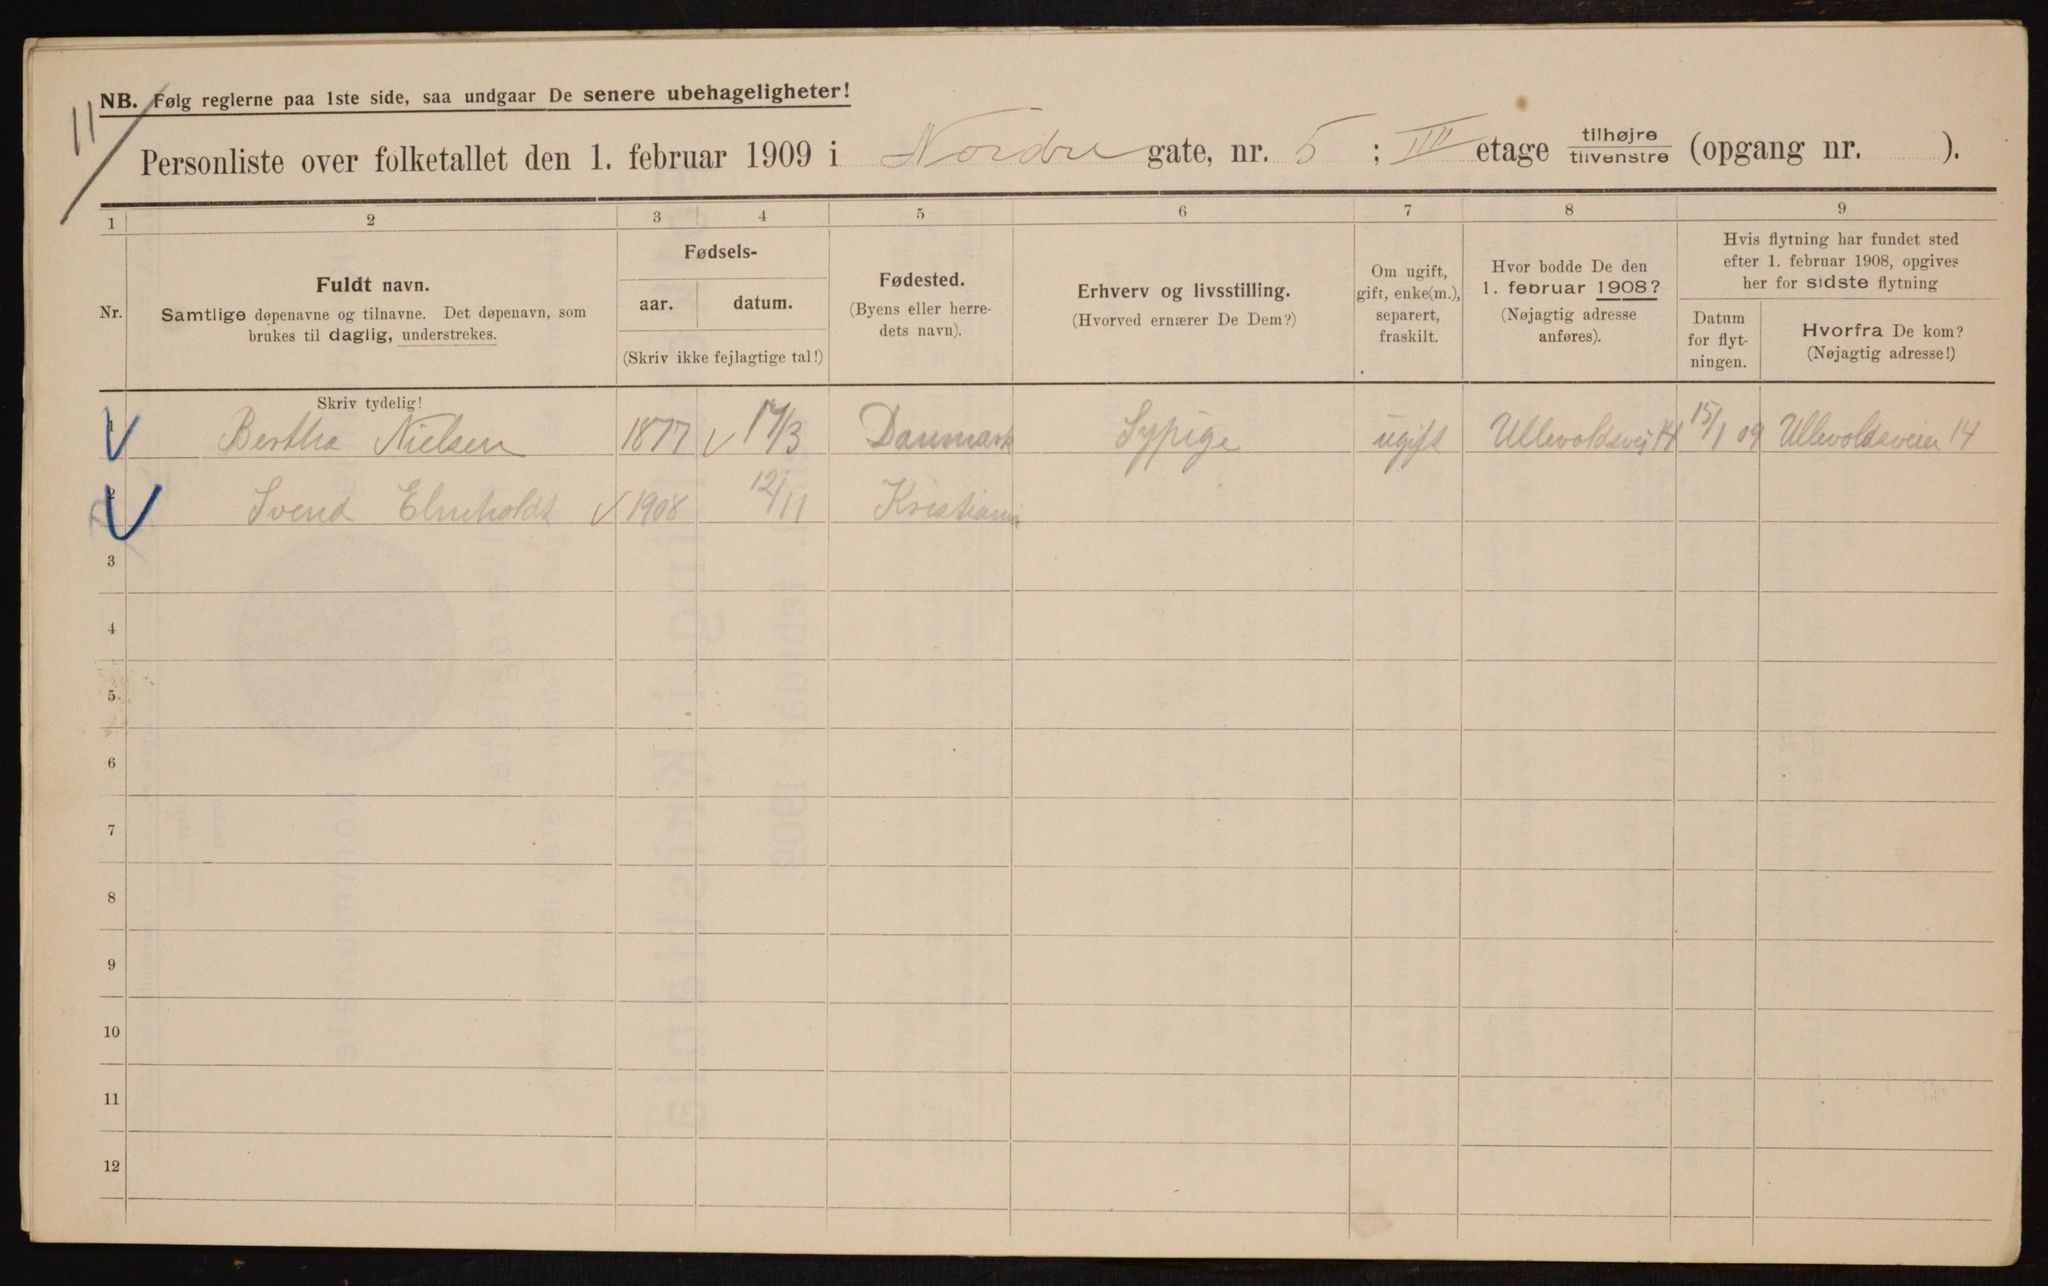 11
NB. Følg reglerne paa 1ste side, saa undgaar De senere ubehageligheter!
Personliste over folketallet den 1. februar 1909 i Nordre gate, nr. 5 ; III etage tilhøjre/tilvenstre (opgang nr. ).
1 2 3 4 5 6 7 8 9
Nr.
Fuldt navn.
Samtlige døpenavne og tilnavne. Det døpenavn, som
brukes til daglig, understrekes.
Fødsels-
aar. datum.
(Skriv ikke fejlagtige tal!)
Fødested.
(Byens eller herre-
dets navn).
Erhverv og livsstilling.
(Hvorved ernærer De Dem?)
Om ugift,
gift, enke(m.),
separert,
fraskilt.
Hvor bodde De den
1. februar 1908?
(Nøjagtig adresse
anføres).
Hvis flytning har fundet sted
efter 1. februar 1908, opgives
her for sidste flytning
Datum
for flyt-
ningen.
Hvorfra De kom?
(Nøjagtig adresse!)
Skriv tydelig!
1 Bertha Nielsen 1877 17/3 Danmark Sypige ugift Ullevoldsvej 14 15/1 09 Ullevoldsveien 14
2 Svend Elmholdt 1908 12/11 Kristiania
3
4
5
6
7
8
9
10
11
12